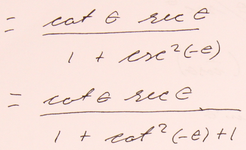 = cot θ sec θ / 1 + csc²(-θ)
= cot θ sec θ / 1 + cot²(-θ) + 1